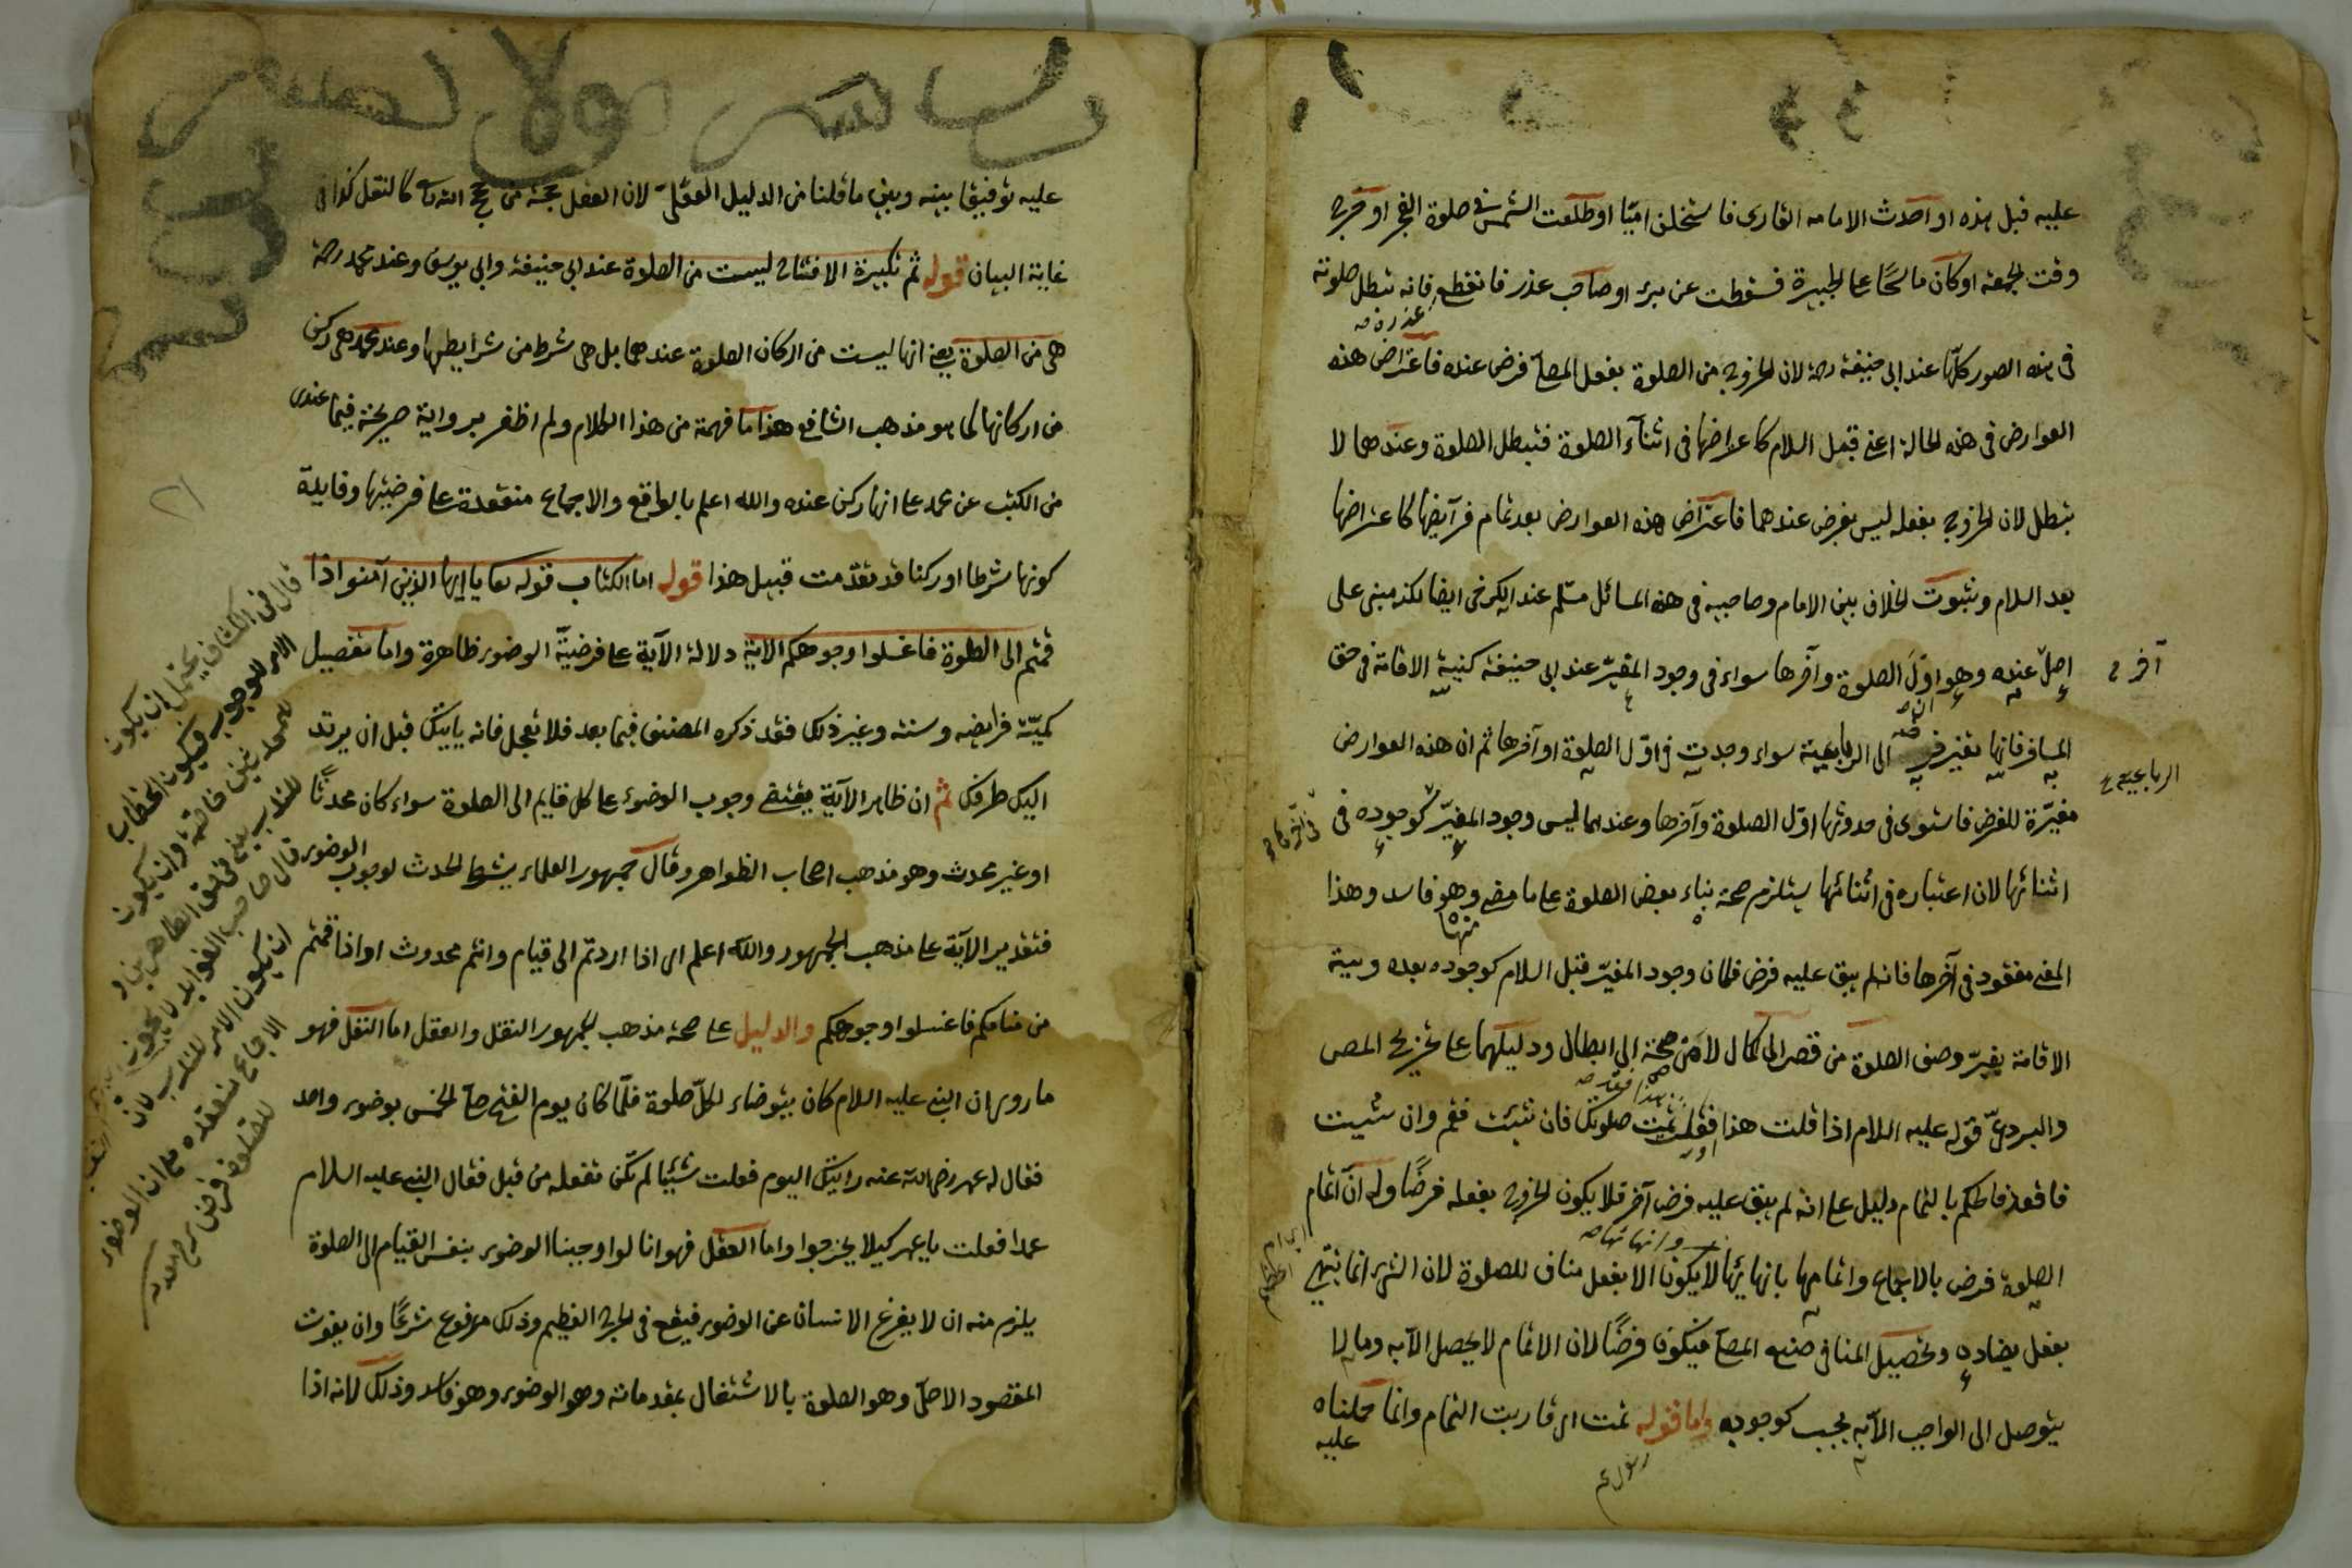 عليه قبل هذه او احدث الامام القارى فاستخلف اميّا او طلعت الشمس فى صلوة الفجر او خرج
وقت الجمعة او كان ماسحًا على الجبيرة فسقطت عن برء او صاحب عذر فانقطع عذره فانه تبطل صلوته
فى هذه الصور كلّها عند ابى حنيفة رحه لان الخروج من الصلوة بفعل المصلّى فرض عنده فاعتراض هذه
العوارض فى هذه الحالة اعنى قبل السلام كاعتراضها فى اثنآء الصلوة فتبطل الصلوة وعندهما لا
تبطل لان الخروج بفعله ليس بفرض عندهما فاعتراض هذه العوارض بعد تمام فرآيضها كاعتراضها
بعد السلام وثبوت الخلاف بين الامام وصاحبيه فى هذه المسائل مسلّم عند الكرخى ايضا لكنه مبنى على
اصل عنده وهو ان اوّل الصلوة وآخرها سواء فى وجود المغيّر عند ابى حنيفة كنية الاقامة فى حق
المسافر فانها تغير فرضه الى الرباعية سواء وجدت فى اوّل الصلوة او آخرها ثم ان هذه العوارض
مغيّرة للفرض فاستوى فى حدوثها اوّل الصلوة وآخرها وعندهما ليس وجود المغيّر كوجوده فى
اثنائها لان اعتباره فى اثنائها يستلزم صحة بناء بعض الصلوة على ما مضى منها وهو فاسد وهذا
المعنى مفقود فى آخرها فانه لم يبق عليه فرض فكان وجود المغيّر قبل السلام كوجوده بعده ونية
الاقامة يغيرّ وصف الصلوة من قصر الى كمال لا من صحة الى ابطال ودليلهما على تخريج المص
والبردعىّ قوله عليه السلام اذا قلت هذا او فعلت هذا فقد تمت صلوتك فان شئت فقم وان شئت
فاقعد فالحكم بالتمام دليل على انه لم يبق عليه فرض آخر فلا يكون الخروج بفعله فرضًا وله ان اتمام
الصلوة فرض بالاجماع واتمامها بانهائها وانهائها لا يكون الا بفعل مناف للصلوة لان الشئ انما ينتهى
بفعل يضاده وتحصيل المنافى صنع المصلّى فيكون فرضًا لان الاتمام لا يحصل الا به وما لا
يتوصل الى الواجب الا به يجب كوجوبه واما قوله تمت اى قاربت التمام وانما حملناه
عليه
آخر
الرباعية
عليه توفيقا بينه وبين ما قلنا من الدليل العقلىّ لان العقل حجة من حجج الله تعا كالنقل كذا فى
غاية البيان قوله ثم تكبيرة الافتتاح ليست من الصلوة عند ابى حنيفة وابى يوسف وعند محمد رحه
هى من الصلوة يعنى انها ليست من اركان الصلوة عندهما بل هى شرط من شرايطها وعند محمد هى ركن
من اركانها كما هو مذهب الشافعى هذا ما فهمته من هذا الكلام ولم اظفر برواية صريحة فيما عندى
من الكتب عن محمد على انها ركن عنده والله اعلم بالواقع والاجماع منعقدة على فرضيتها وفايدة
كونها شرطا او ركنا قد تقدّمت قبيل هذا قوله اما الكتاب قوله تعا يا ايها الذين آمنوا اذا
قمتم الى الصلوة فاغسلوا وجوهكم الآية دلالة الآية على فرضيّة الوضوء ظاهرة واما تفصيل
كميّة فرايضه وسننه وغير ذلك فقد ذكره المصنف فيما بعد فلا تعجل فانه ياتيك قبل ان يرتد
اليك طرفك ثم ان ظاهر الآية يقتضى وجوب الوضوء على كل قايم الى الصلوة سواء كان محدثًا
او غير محدث وهو مذهب اصحاب الظواهر وقال جمهور العلماء يشترط الحدث لوجوب الوضوء
فتقدير الآية على مذهب الجمهور والله اعلم اى اذا اردتم الى قيام وانتم محدوث او اذا قمتم
من منامكم فاغسلوا وجوهكم والدليل على صحة مذهب الجمهور النقل والعقل اما النقل فهو
ما روى ان النبى عليه السلام كان يتوضاء لكلّ صلوة فلمّا كان يوم الفتح صلّى الخمس بوضوء واحد
فقال له عمر رضى الله عنه رايتك اليوم فعلت شيئا لم تكن تفعله من قبل فقال النبى عليه السلام
عمدا فعلت يا عمر كيلا يحرجوا واما العقل فهو انا لو اوجبنا الوضوء بنفس القيام الى الصلوة
يلزم منه ان لا يفرغ الانسان عن الوضوء فيقع فى الحرج العظيم وذلك مرفوع شرعًا وان يفوت
المقصود الاصلىّ وهو الصلوة بالاشتغال بمقدماته وهو الوضوء وهو فاسد وذلك لانه اذا
قال فى الكشاف يحتمل ان يكون
الامر للوجوب فيكون الخطاب
للمحدثين خاصة وان يكون
للندب
قال صاحب الفوايد لا يجوز
ان يكون الامر للندب لان
الاجماع منعقدة على ان الوضوء
للصلوة فرض